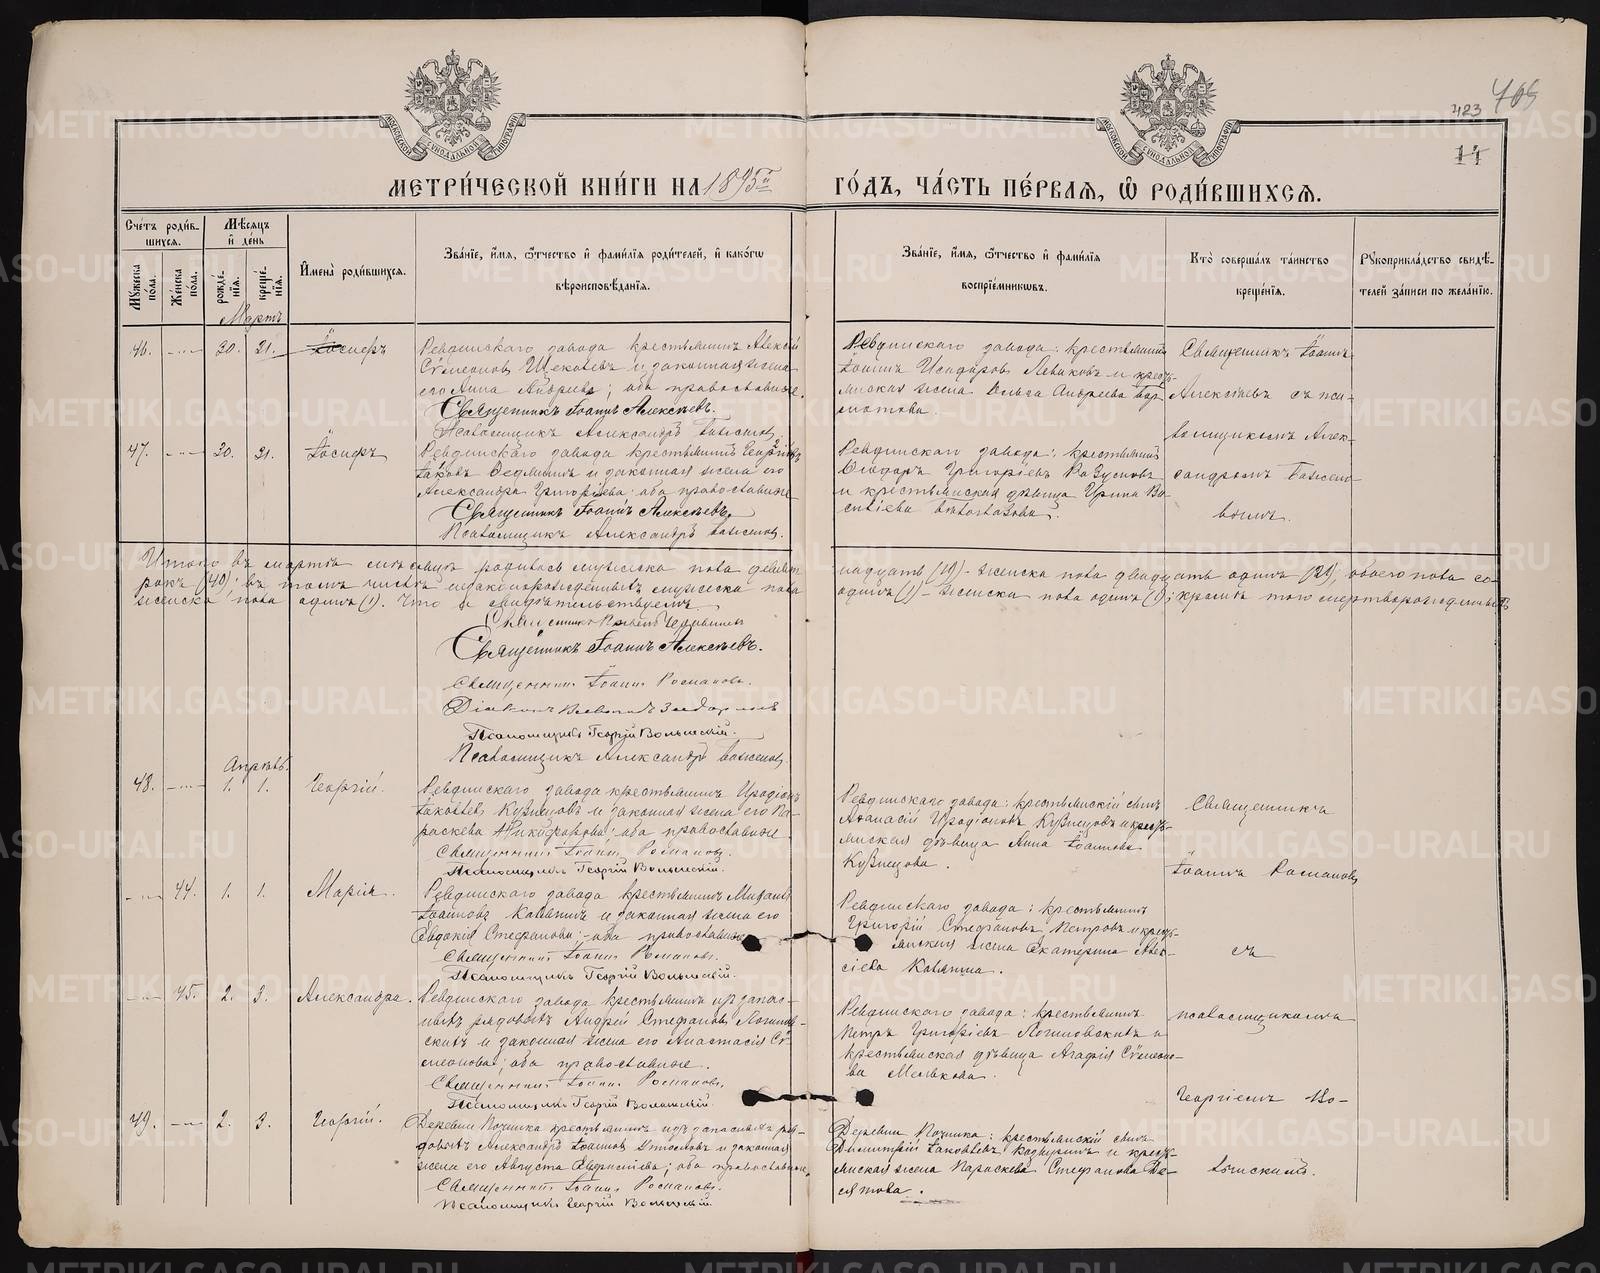 423 705
14
МЕТРИ́ЧЕСКОЙ КНИ́ГИ НА 1895й ГО́ДЪ, ЧА́СТЬ ПЕ́РВАЯ, Ѽ РОДИ́ВШИХСЯ.
Сче́тъ роди́в-
шихся.
Му́жеска по́ла.
Же́нска по́ла.
Мѣ́сяцъ и де́нь
рожде́-нія.
креще́-нія.
Имена̀ роди́вшихся.
Зва́ніе, и́мя, ѻ́тчество и фами́лія роди́телей, и како́гѡ
вѣроисповѣ́данія.
Зва́ніе, и́мя, ѻ́тчество и фами́лія
воспріе́мникѡвъ.
Кто̀ соверша́лъ та́инство
креще́нія.
Рукоприкла́дство свидѣ́-
телей за́писи по жела́нію.
Мартъ
46. 20. 21. Іосифъ
Ревдинскаго завода крестьянинъ Алексѣй
Сѷмеоновъ Щекалевъ и законная жена
его Анна Андреева; оба православные.
Священникъ Іоаннъ Алексѣевъ.
Псаломщикъ Александръ Баженовъ
Ревдинскаго завода: крестьянинъ
Іоаннъ Исидоровъ и кресть-
янская жена Ольга Андреева
Священникъ Іоаннъ
Алексѣевъ съ пса-
ломщикомъ Алек-
сандромъ Бажено-
вымъ.
47. 20. 21. Іосифъ
Ревдинскаго завода крестьянинъ
Іаковъ и законная жена его
Александра Григорьева; оба православные
Священникъ Іоаннъ Алексѣевъ.
Псаломщикъ Александръ Баженовъ.
Ревдинскаго завода: крестьянинъ
Ѳеодоръ Григорьевъ
и крестьянская дѣвица Ирина Ва-
сильева
Итого въ мартѣ мѣсяцѣ родилось мужеска пола девят-
надцать (19) - женска пола двадцать одинъ (21), обоего пола со-
рокъ (40); въ томъ числѣ незаконнорожденныхъ мужеска пола
одинъ (1) - женска пола одинъ (1); кромѣ того мертворожденныхъ
женска пола одинъ (1). Что и свидѣтельствуемъ
Священникъ
Священникъ Іоаннъ Алексѣевъ.
Священникъ Іоаннъ Романовъ.
Діаконъ
Псаломщикъ Георгій Волынскій.
Псаломщикъ Александръ Баженовъ
Апрѣль.
48. 1. 1. Георгій.
Ревдинскаго завода крестьянинъ Иродіонъ
Іаковлевъ Кузнецовъ и законная жена его Па-
раскева Никифорова; оба православные
Священникъ Іоаннъ Романовъ.
Псаломщикъ Георгій Волынскій.
Ревдинскаго завода: крестьянскій сынъ
Аѳанасій Иродіоновъ Кузнецовъ и кресть-
янская дѣвица Анна Іоаннова
Кузнецова.
Священникъ
Іоаннъ Романовъ
съ
псаломщикомъ
Георгіемъ Во-
лынскимъ.
44. 1. 1. Марія.
Ревдинскаго завода крестьянинъ Михаилъ
Іоанновъ и законная жена его
Евдокія Стефанова; оба православные
Священникъ Іоаннъ Романовъ.
Псаломщикъ Георгій Волынскій.
Ревдинскаго завода: крестьянинъ
Григорій Стефановъ Петровъ и кресть-
янская жена Екатерина Алек-
сіева
45. 2. 3. Александра.
Ревдинскаго завода крестьянинъ изъ запас-
ныхъ рядовыхъ Андрей Стефановъ Логинов-
скихъ и законная жена его Анастасія Сѷ-
меонова; оба православные.
Священникъ Іоаннъ Романовъ.
Псаломщикъ Георгій Волынскій.
Ревдинскаго завода: крестьянинъ
Петръ Григорьевъ Логиновскихъ и
крестьянская дѣвица Агафія Сѷмеоно-
ва Мелькова.
49. 2. 3. Георгій.
Деревни Починка крестьянинъ изъ запасныхъ ря-
довыхъ Александръ Іоанновъ и законная
жена его Августа; оба православные
Священникъ Іоаннъ Романовъ.
Псаломщикъ Георгій Волынскій.
Деревни Починка: крестьянскій сынъ
Димитрій Іаковлевъ и кресть-
янская жена Параскева Стефанова Де-
сятова.
METRIKI.GASO-URAL.RU